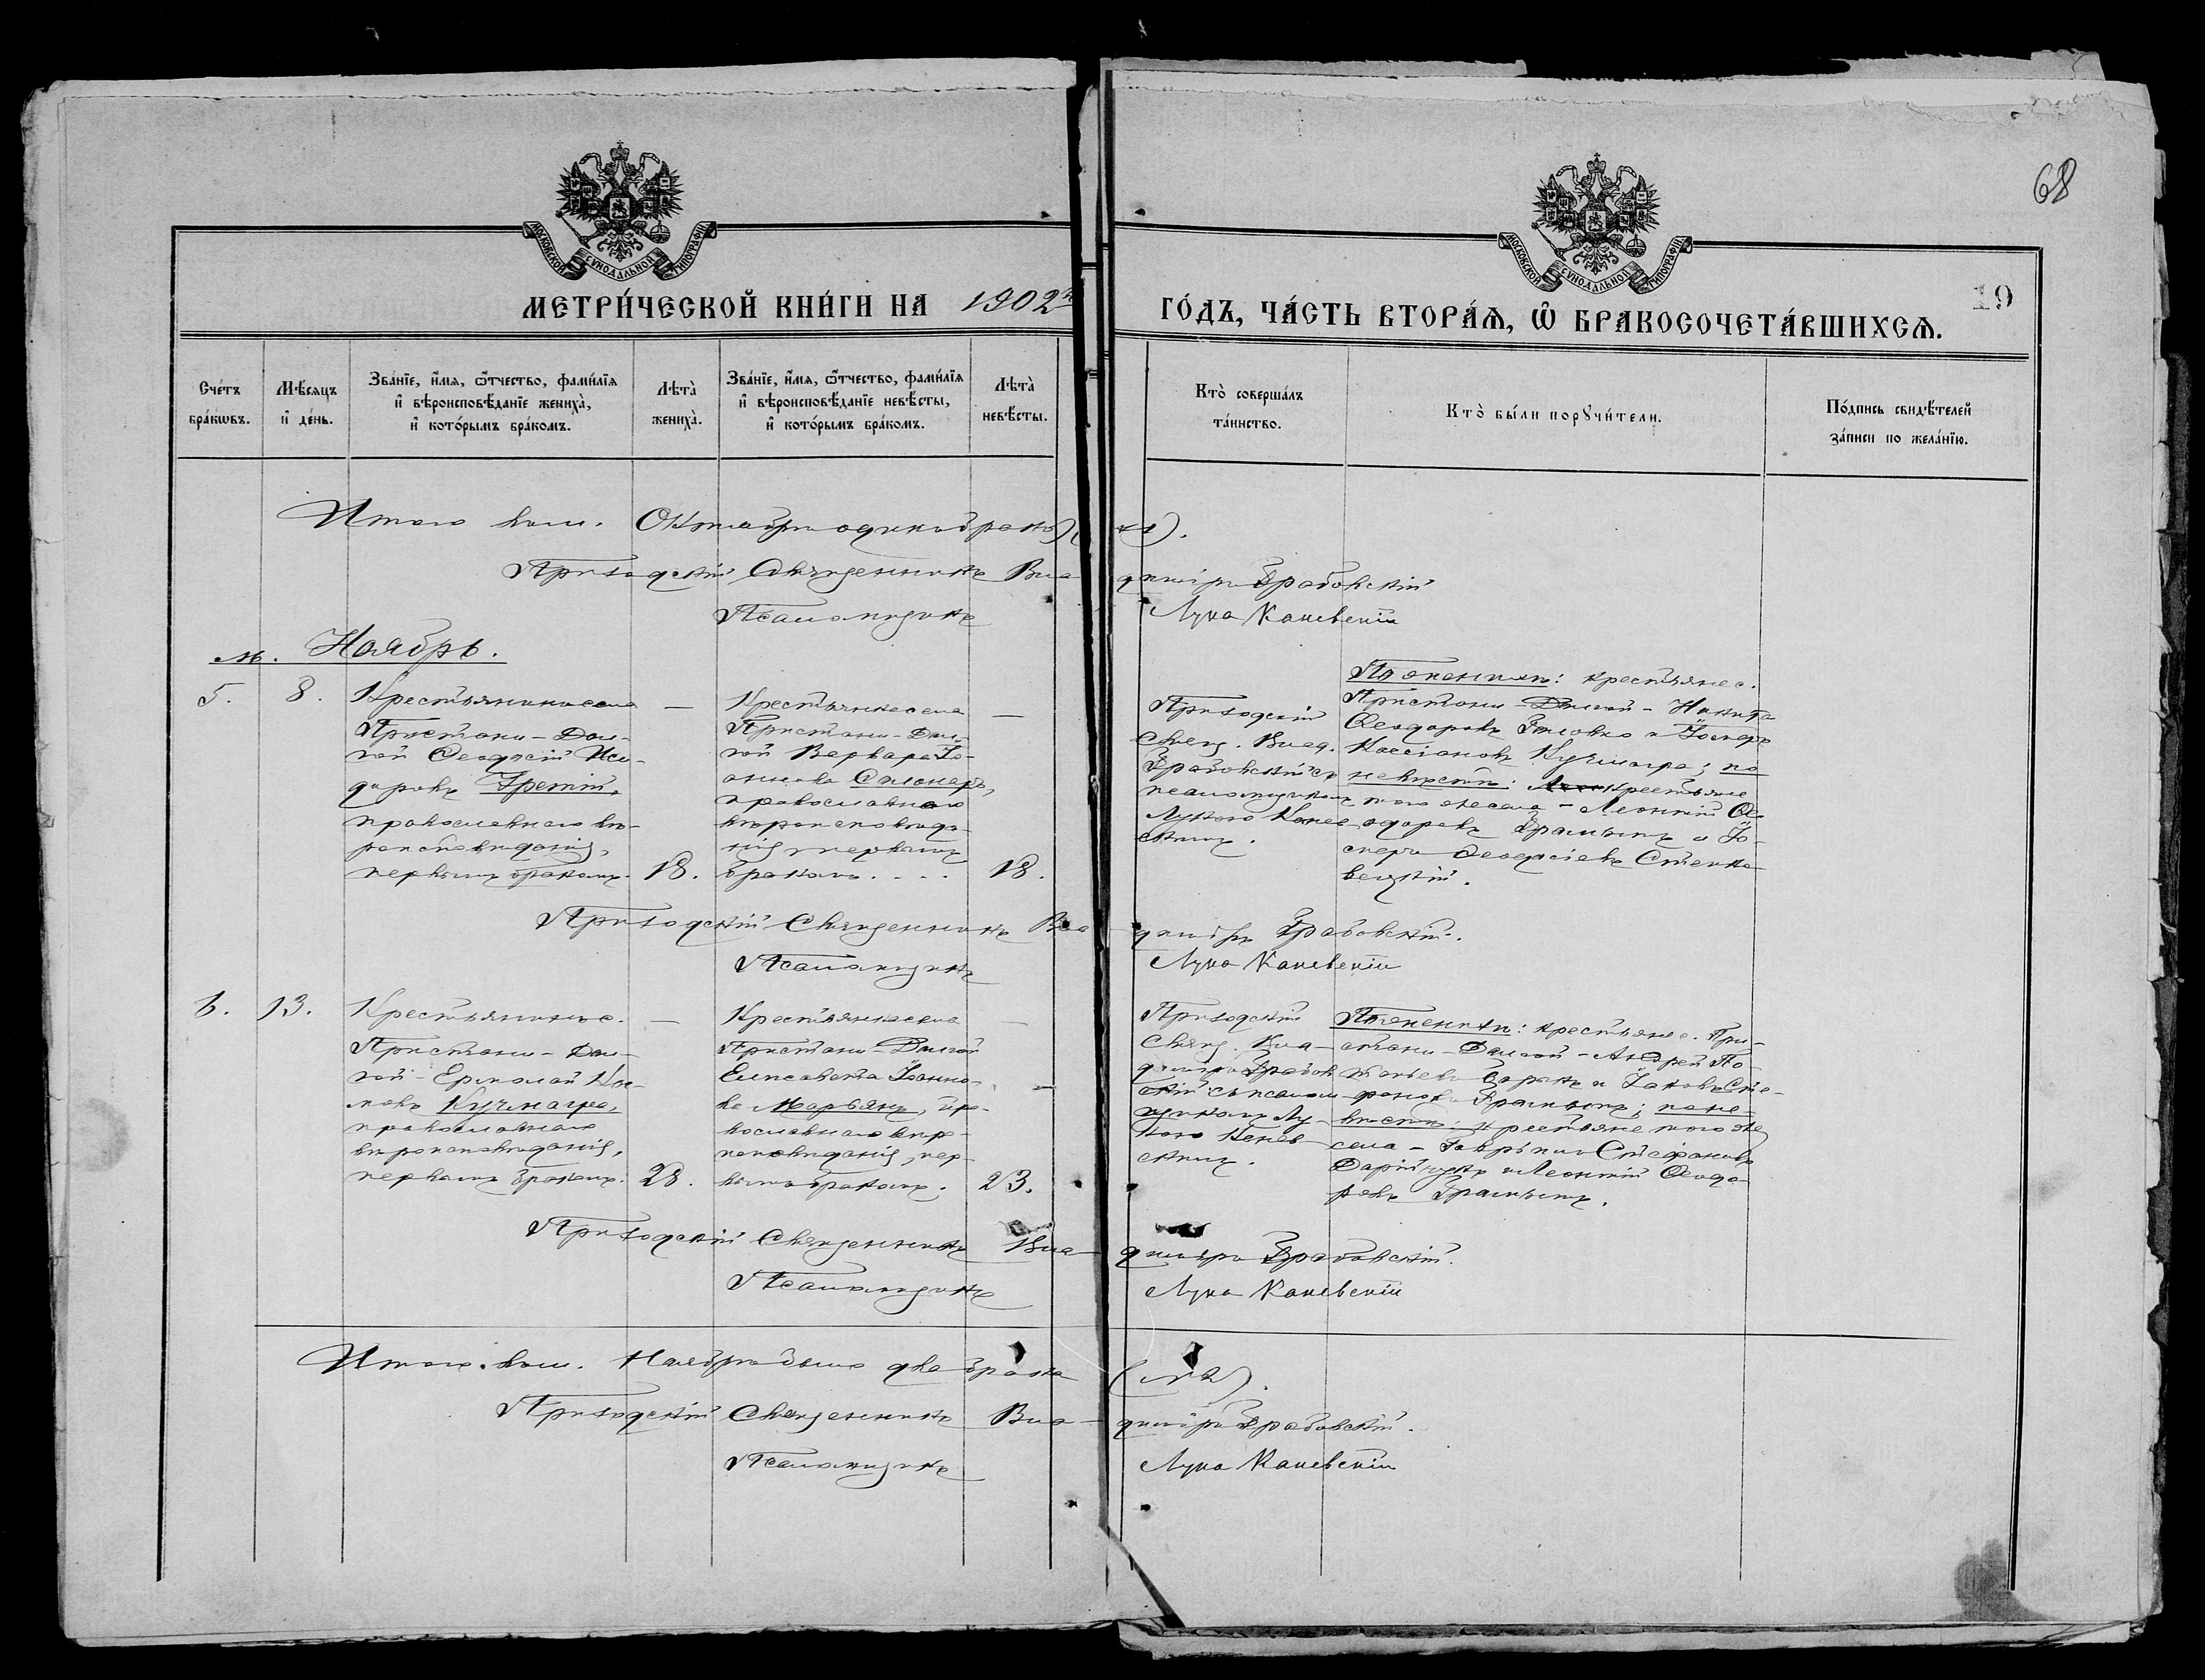 68
МОСКОВСКОЙ СѴНОДАЛЬНОЙ ТИПОГРАФІИ
МОСКОВСКОЙ СѴНОДАЛЬНОЙ ТИПОГРАФІИ
МЕТРИ́ЧЕСКОЙ КНИ́ГИ НА 1902й ГО́ДЪ, ЧА́СТЬ ВТОРА́Ѧ, Ѡ҆ БРАКОСОЧЕТА́ВШИХСѦ.
19
Сче́тъ бра́кѡвъ.
Мѣ́сяцъ и҆ де́нь.
Зва́нїе, и҆́мѧ, ѻ҆́тчество, фами́лїѧ
и҆ вѣроисповѣ́данїе жениха̀,
и҆ кото́рымъ бра́комъ.
Лѣта̀ жениха̀.
Зва́нїе, и҆́мѧ, ѻ҆́тчество, фами́лїѧ
и҆ вѣроисповѣ́данїе невѣ́сты,
и҆ кото́рымъ бра́комъ.
Лѣта̀ невѣ́сты.
Кто̀ соверша́лъ
та́инство.
Кто̀ бы́ли порꙋчи́тели.
По́дпись свидѣ́телей
за́писи по жела́нїю.
Итого въ м. Октябрѣ одинъ бракъ (№1).
Приходскій Священникъ Владиміръ Грабовскій
Псаломщикъ Лука Каневскій
м. Ноябрь.
5.
8.
Крестьянинъ села
Пристани-Дол-
гой Ѳеодосій Иси-
доровъ Третій,
православнаго вѣ-
роисповѣданія,
первымъ бракомъ.
18.
Крестьянка села
Пристани-Дол-
гой Варвара Іо-
аннова
православнаго
вѣроисповѣда-
нія, первымъ
бракомъ....
18.
Приходскій
Свящ. Влад.
Грабовскій съ
псаломщикомъ
Лукою Канев-
скимъ.
По женихѣ: крестьяне с.
Пристани-Долгой - Никита
Ѳеодоровъ и Іосифъ
Кассіановъ Кучмагра; по
невѣстѣ: крестьяне
того же села - Леонтій Ѳе-
одоровъ и Іо-
сифъ Ѳеодосіевъ
Приходскій Священникъ Владиміръ Грабовскій.
Псаломщикъ Лука Каневскій
6.
13.
Крестьянинъ с.
Пристани-Дол-
гой - Ермолай
Кучмагра,
православнаго
вѣроисповѣданія,
первымъ бракомъ.
28.
Крестьянка села
Пристани-Долгой
Елисавета Іоанно-
ва Марьянъ, пра-
вославнаго вѣро-
исповѣданія, пер-
вымъ бракомъ.
23.
Приходскій
Свящ. Вла-
диміръ Грабов-
скій съ псалом-
щикомъ Лу-
кою Канев-
скимъ.
По женихѣ: крестьяне с. При-
стани-Долгой - Андрей По-
и Іаковъ Сте-
фановъ по не-
вѣстѣ: крестьяне того же
села - Гавріилъ Стефановъ
Дарійчукъ и Леонтій Ѳеодо-
ровъ
Приходскій Священникъ Владиміръ Грабовскій.
Псаломщикъ Лука Каневскій
Итого въ м. Ноябрѣ было два брака (№2).
Приходскій Священникъ Владиміръ Грабовскій.
Псаломщикъ Лука Каневскій